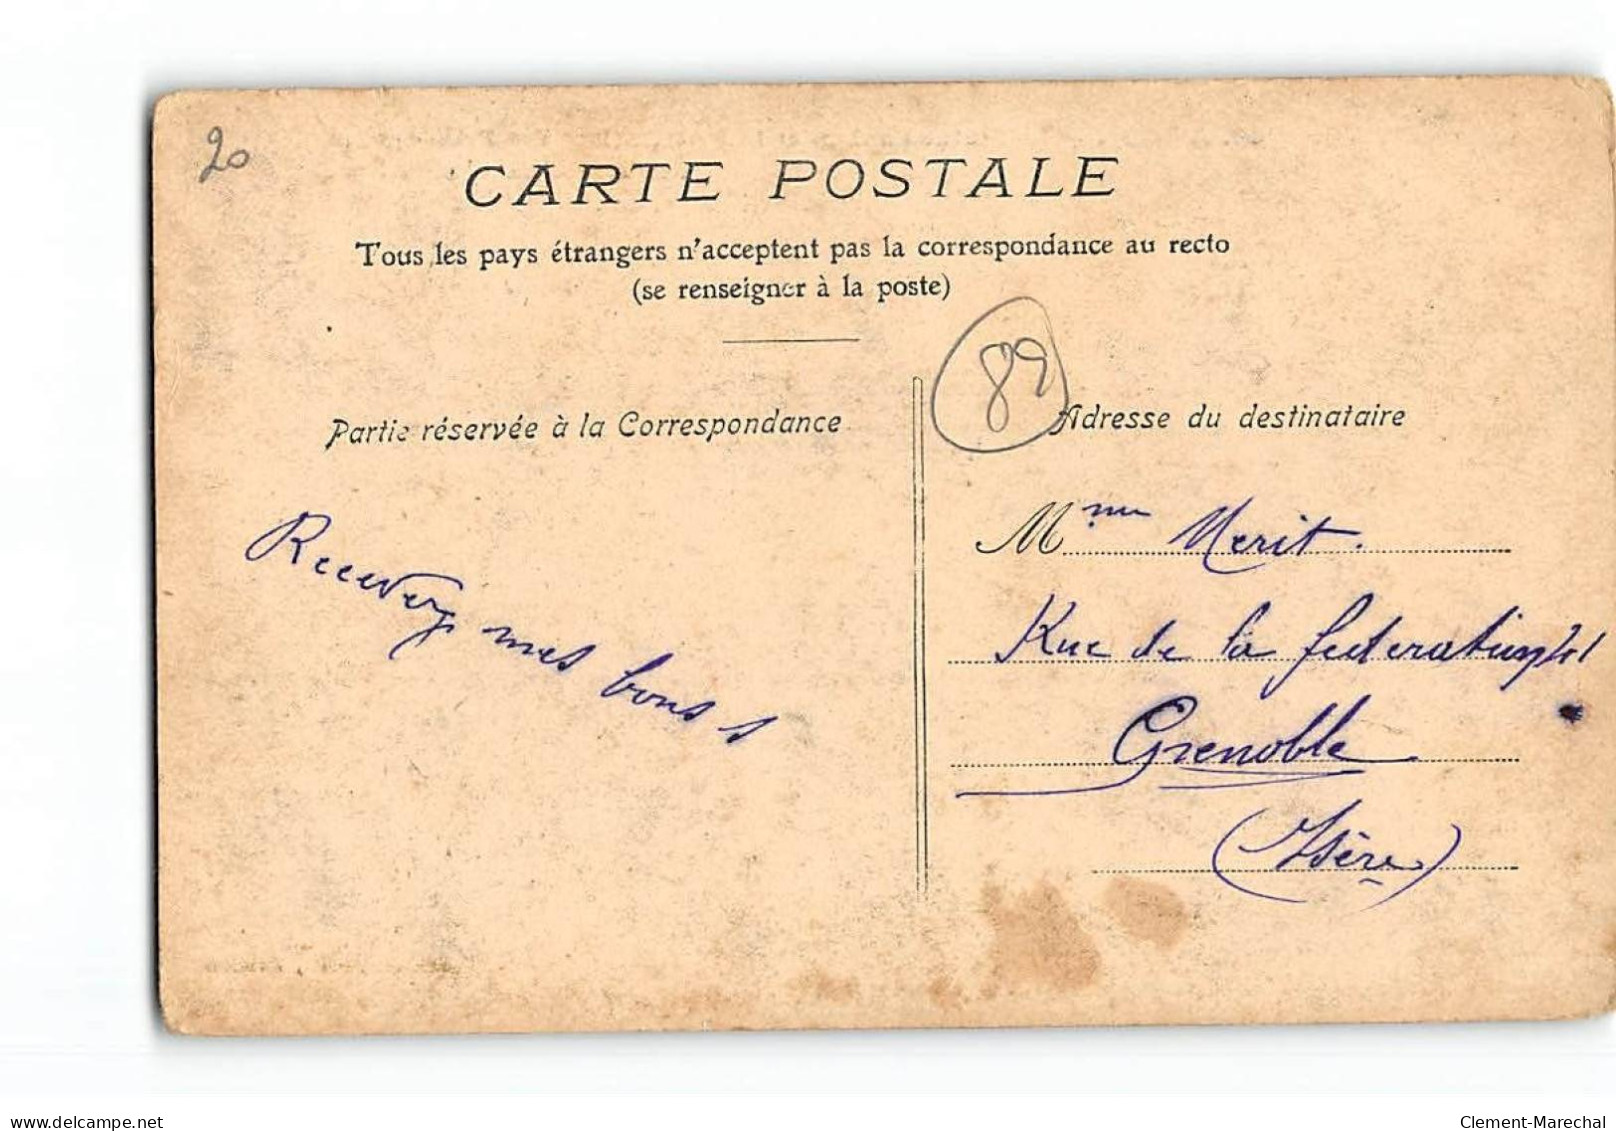 20
CARTE POSTALE
Tous les pays étrangers n'acceptent pas la correspondance au recto
(se renseigner à la poste)
89
Partie réservée à la Correspondance
Adresse du destinataire
Recevez mes bons
Mme Merit.
Rue de la federation 41
Grenoble
(Isère)
delcampe.net
Clement-Marechal